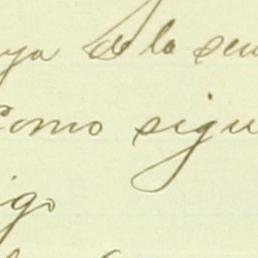 ya de la seu
como sigu
igo